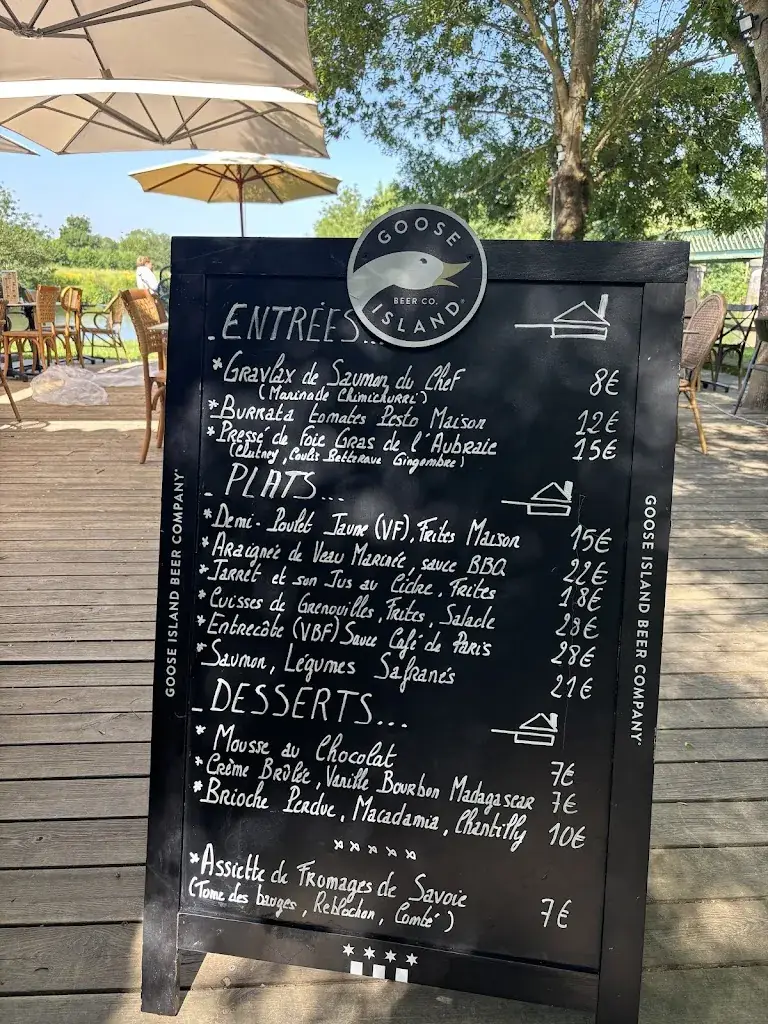 GOOSE
BEER CO.
ISLAND
- ENTRÉES...
* Gravlax de Saumon du Chef 8€
(Marinade Chimichurri)
* Burrata tomates Pesto Maison 12€
* Pressé de foie Gras de l'Aubraie 15€
(Chutney, Coulis Betterave Gingembre)
- PLATS...
* Demi-Poulet Jaune (VF), Frites Maison 15€
* Araignée de Veau Marinée, sauce BBQ 22€
* Jarret et son Jus au Cidre, Frites 18€
* Cuisses de Grenouilles, Frites, Salade 28€
* Entrecôte (VBF) Sauce Café de Paris 28€
* Saumon, Légumes Safranés 21€
- DESSERTS...
* Mousse au Chocolat 7€
* Crème Brûlée, Vanille Bourbon Madagascar 7€
* Brioche Perdue, Macadamia, Chantilly 10€
x x x x x
* Assiette de Fromages de Savoie 7€
(Tome des bauges, Reblochon, Comté)
GOOSE ISLAND BEER COMPANY
GOOSE ISLAND BEER COMPANY